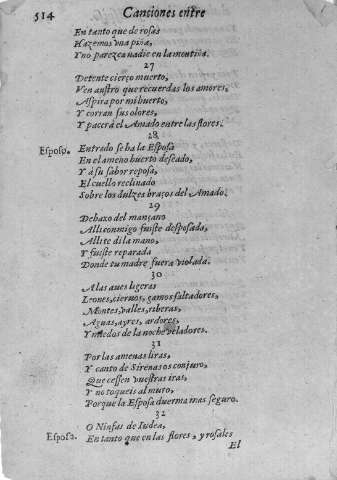 514 Canciones entre
En tanto que de rosas
Hazemos vna piña,
Y no parezca nadie en la montiña.
27
Detente cierço muerto,
Ven austro que recuerdas los amores,
Aspira por mi huerto,
Y corran sus olores,
Y pacera el Amado entre las flores.
28
Esposo. Entrado se ha la Esposa
En el ameno huerto deseado,
Y à su sabor reposa,
El cuello reclinado
Sobre los dulzes braços del Amado.
29
Debaxo del mançano
Alli conmigo fuiste desposada,
Alli te di la mano,
Y fuiste reparada
Donde tu madre fuera violada.
30
A las aues ligeras
Leones, cieruos, gamos saltadores,
Montes, valles, riberas,
Aguas, ayres, ardores,
Y miedos de la noche veladores.
31
Por las amenas liras,
Y canto de Sirenas os conjuro,
Que cessen vuestras iras,
Y no toqueis al muro,
Porque la Esposa duerma mas seguro.
32
O Ninfas de Iudea,
Esposa. En tanto que en las flores, y rosales
El